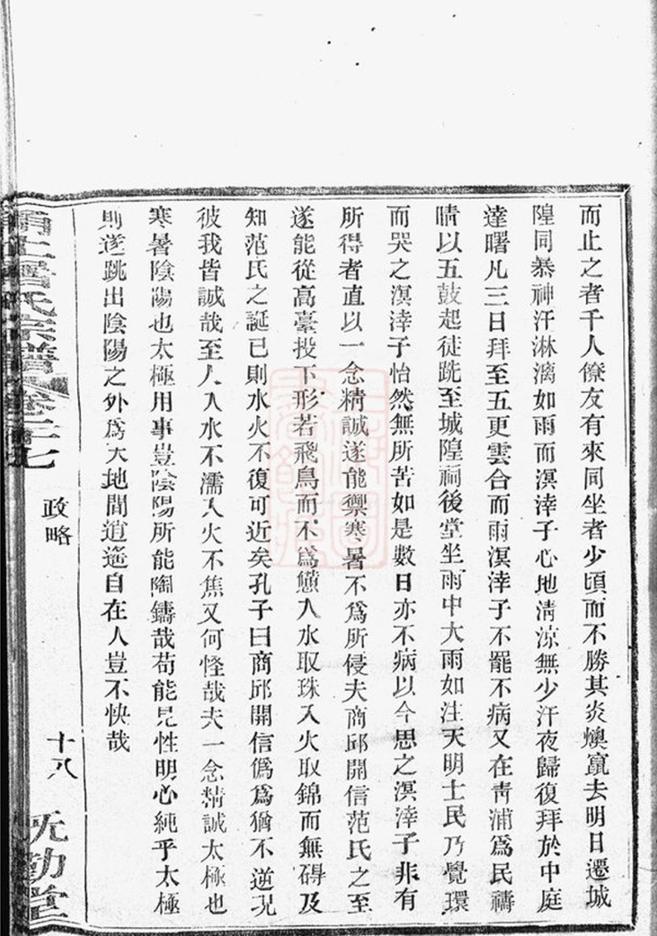 而止之者千人僚友有來同坐者少頃而不勝其炎燠竄去明日遷城
隍同暴神汗淋漓如雨而溟涬子心地淸涼無少汗夜歸復拜於中庭
達曙凡三日拜至五更雲合而雨溟涬子不罷不病又在靑浦爲民禱
晴以五鼓起徒跣至城隍祠後堂坐雨中大雨如注天明士民乃覺環
而哭之溟涬子怡然無所苦如是數日亦不病以今思之溟涬子非有
所得者直以一念精誠遂能禦寒暑不爲所侵夫商邱開信范氏之至
遂能從高臺投下形若飛鳥而不爲䭾入水取珠入火取錦而無碍及
知范氏之誕已則水火不復可近矣孔子曰商邱開信僞爲猶不逆况
彼我皆誠哉至人入水不濡入火不焦又何怪哉夫一念精誠太極也
寒暑陰陽也太極用事豈陰陽所能陶鑄哉苟能見性明心純乎太極
則遂跳出陰陽之外爲天地間逍遙自在人豈不快哉
氏宗譜
卷二十七
政略
十八